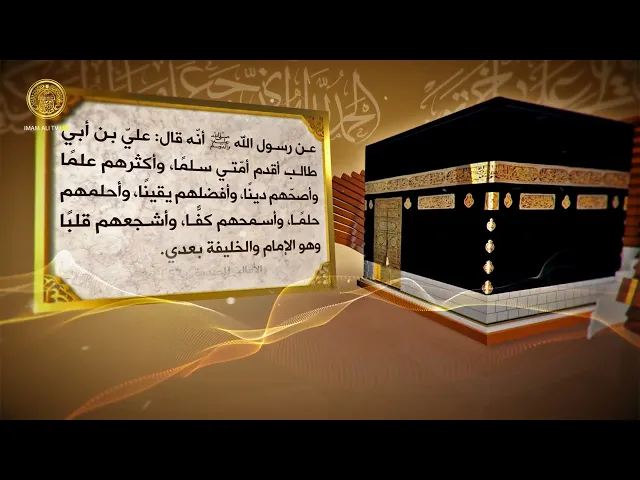 عن رسول الله ﷺ أنّه قال: عليّ بن أبي
طالب أقدم أمّتي سلمًا، وأكثرهم علمًا
وأصحّهم دينًا، وأفضلهم يقينًا، وأحلمهم
حلمًا، وأسمحهم كفًّا، وأشجعهم قلبًا
وهو الإمام والخليفة بعدي.
IMAM ALI TV